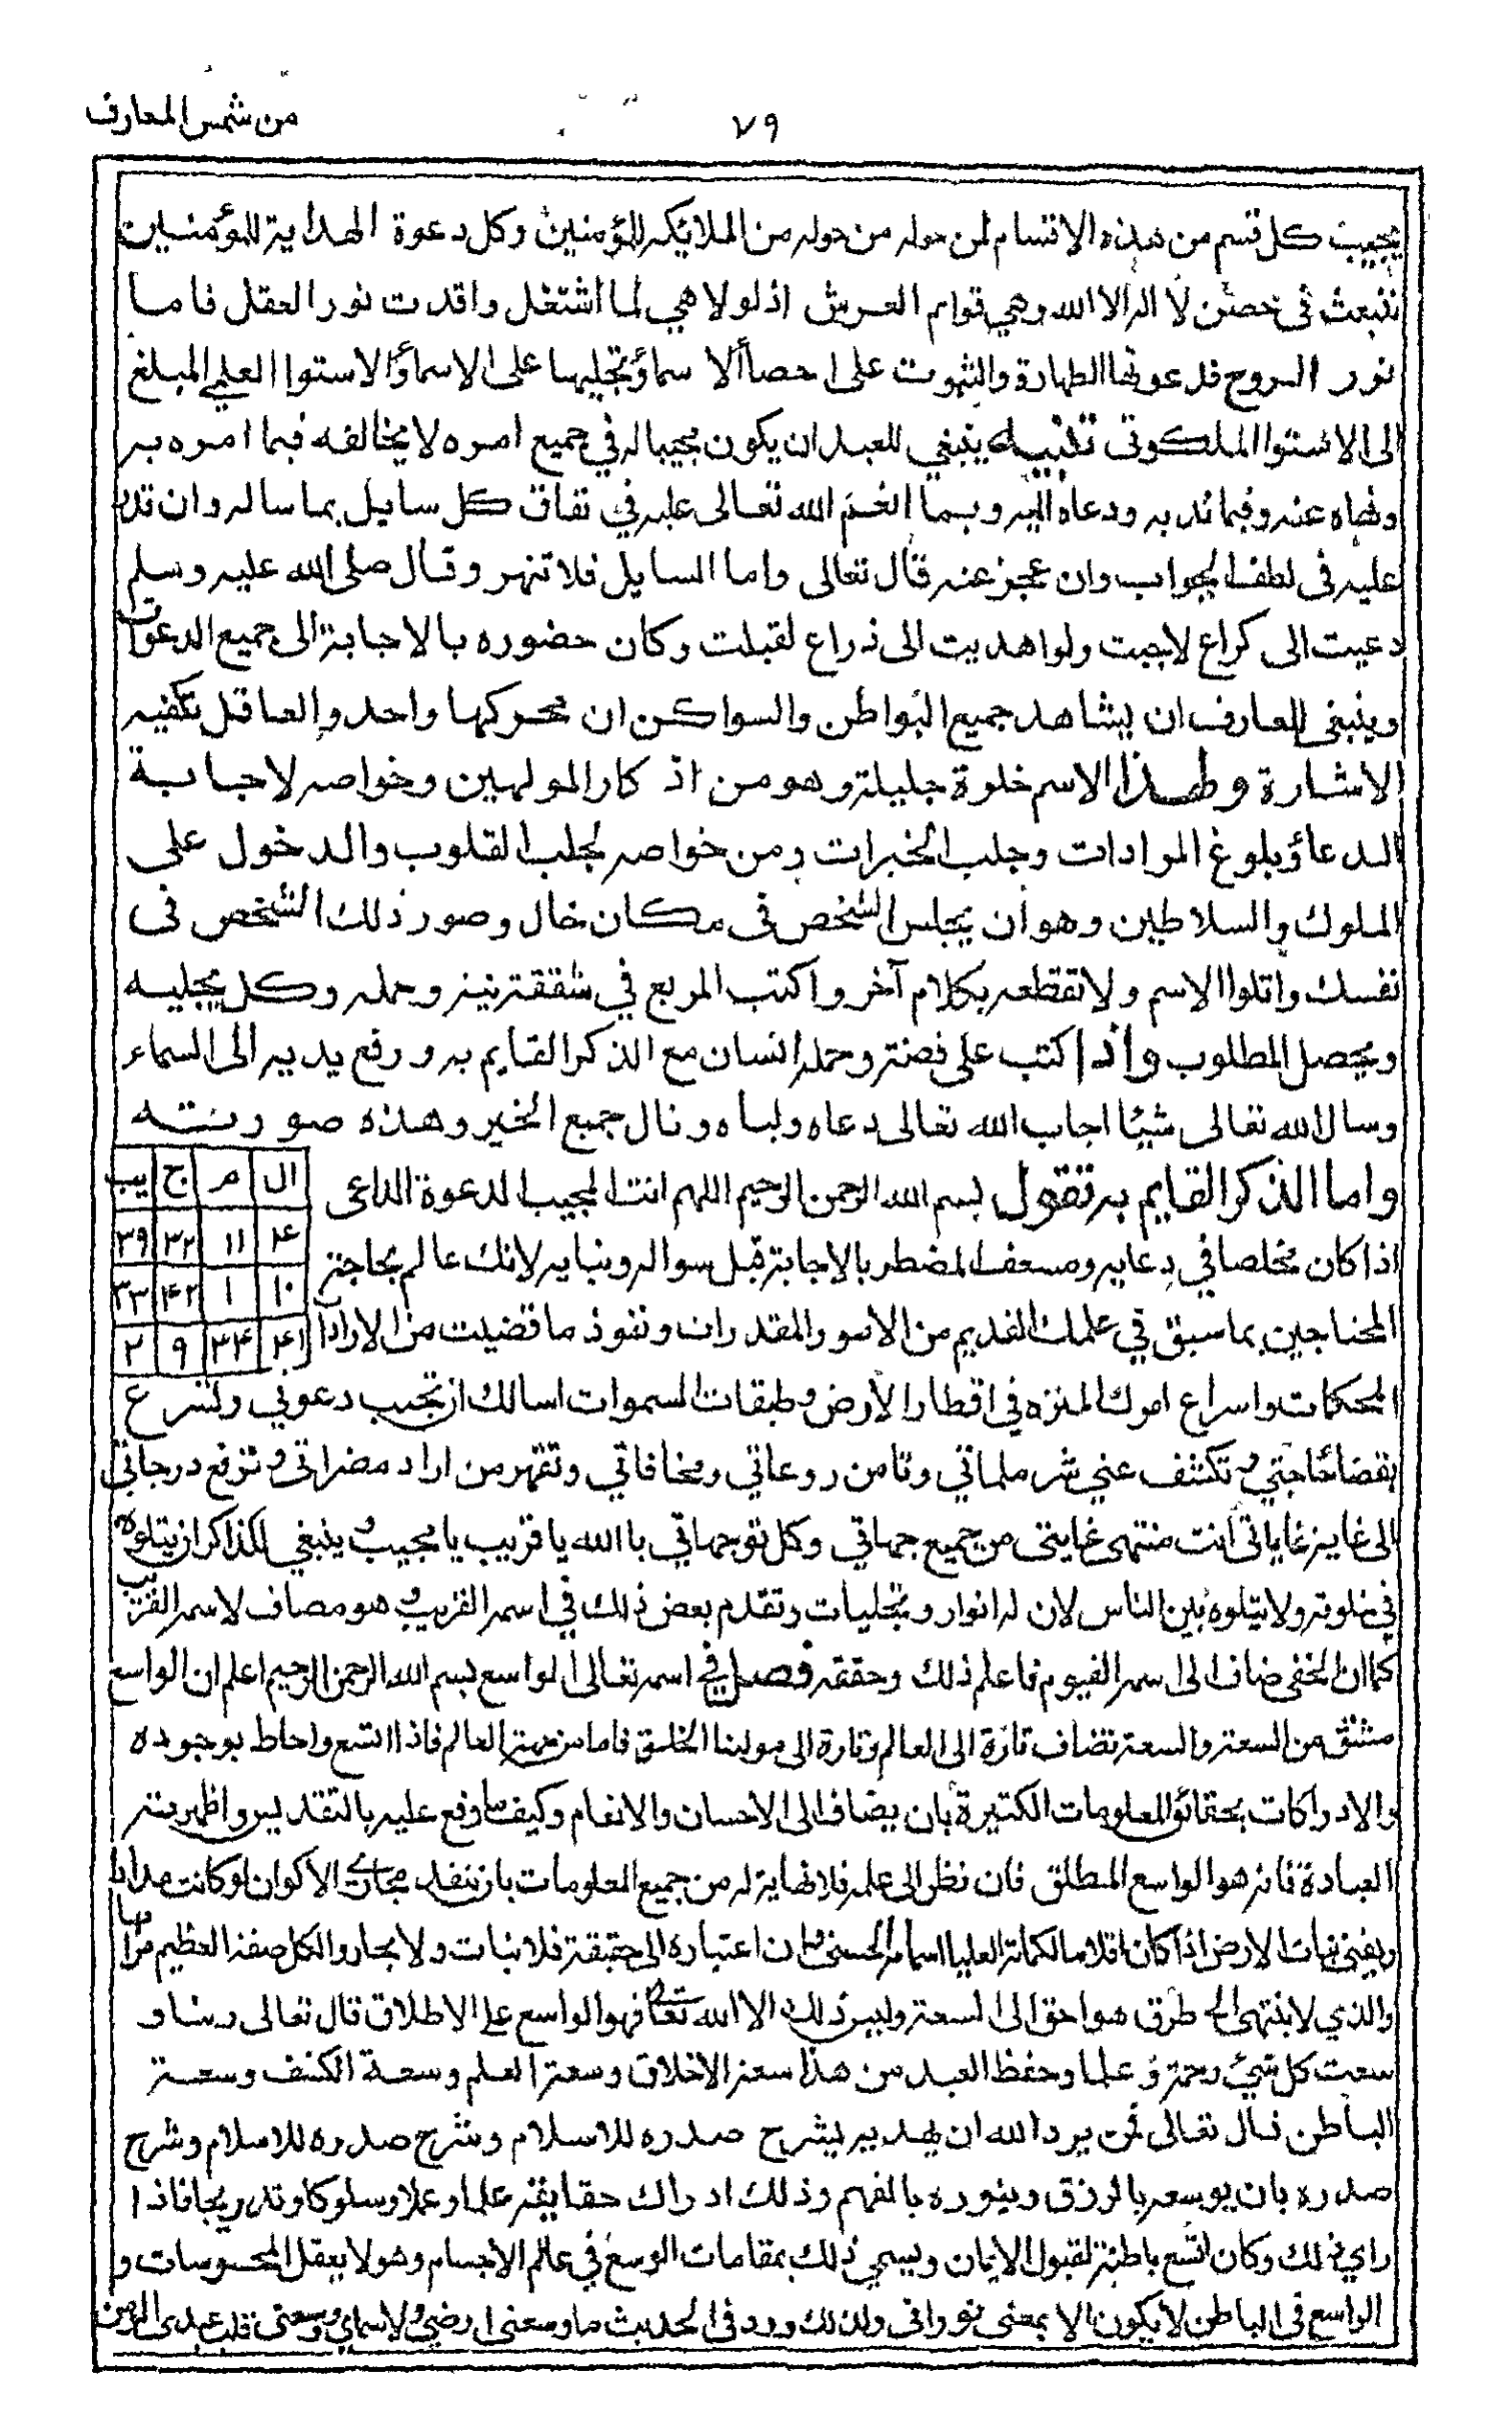 من شمس المعارف
٧٩
يجيب كل قسم من هذه الاقسام لمن حوله من حوله من الملائكه للمؤمنين وكل دعوة الهداية للمؤمنين
تنبعث في حصن لا اله الا الله وهي قوام العرش اذ لولا هي لما اشتغل واقدت نور العقل فاما
نور الروح فدعوتها الطهارة والثبوت على احصاألا سماؤتجليها على الاسماؤالاستوا العلي المبلغ
الى الاستوا الملكوتى تنبيه ينبغي للعبد ان يكون مجيبا له في جميع امره لا يخالفه فيما امره به
ونهاه عنه وفيما ندبه ودعاه اليه وبما انعم الله تعالى عليه في نفاق كل سايل بما ساله وان تدر
عليه فى لطف الجواب وان عجز عنه قال تعالى واما السايل فلا تنهر وقال صلى الله عليه وسلم
دعيت الى كراع لاجبت ولو اهديت الى ذراع لقبلت وكان حضوره بالاجابة الى جميع الدعوات
وينبغى للعارف ان يشاهد جميع البواطن والسواكن ان محركها واحد والعاقل تكفيه
الاشارة ولهذا الاسم خلوة جليلة وهو من اذكار المولهين وخواصه لاجابة
الدعاؤبلوغ المرادات وجلب الخيرات ومن خواصه لجلب القلوب والدخول على
الملوك والسلاطين وهو ان يجلس الشخص فى مكان خال وصور ذلك الشخص فى
نفسك واتلوا الاسم ولا تقطعه بكلام آخر واكتب المربع في شققة نيئه وحمله وكل يجليه
ويحصل المطلوب واذا كتب على فضة وحمله انسان مع الذكر القايم به ورفع يديه الى السماء
وسال الله تعالى شيئا اجاب الله تعالى دعاه ولباه ونال جميع الخير وهذه صورته
واما الذكر القايم به تقول بسم الله الرحمن الرحيم اللهم انت المجيب لدعوة الداعى
ال م ج يب
اذا كان مخلصا في دعايه ومسعف المضطر بالاجابة قبل سواله وندايه لانك عالم بحاجة
۴ ١١ ٣٢ ٣٩
المحتاجين بما سبق في علمك القديم من الامور والمقدرات ونفوذ ما قضيت من الارادا
١٠ ١ ۴٢ ٣٣
۴١ ٣۴ ٩ ٢
المحكمات واسراع امرك المنزه في اقطار الارض وطبقات السموات اسالك ان تجيب دعوتي وتسرع
بقضا حاجتي وتكشف عني شر ملماتي وتامن روعاتي ومخافاتي وتقهر من اراد مضراتى وترفع درجاتي
الى غاية غاياتى أنت منتهى غايتى من جميع جهاتي وكل توجهاتي يا الله يا قريب يا مجيب وينبغي للذاكر ان يتلوه
في خلوته ولا يتلوه بين الناس لان له انوار وتجليات وتقدم بعض ذلك في اسمه القريب وهو مضاف لاسمه القريب
كما ان الخفى ضاف الى اسمه القيوم فاعلم ذلك وحققه فصل في اسمه تعالى الواسع بسم الله الرحمن الرحيم اعلم ان الواسع
مشتق من السعة والسعة تضاف تارة الى العالم وتارة الى مولينا الخلق فاما من جهة العالم فاذا اتسع واحاط بوجوده
والادراكات بحقائق المعلومات الكثيرة بان يضاف الى الاحسان والانعام وكيف ما وقع عليه بالتقديس واظهرته
العبادة فانه هو الواسع المطلق فان نظر الى علمه فلا نهاية له من جميع المعلومات بان تنفد مجاري الاكوان لو كانت مدادا
ويفنى نبات الارض اذا كان اقلاما لكلماته العليا اسماءه الحسنى وان اعتباره الى حقيقة فلا نبات ولا بحار والكل صفة العظيم منها
والذي لا ينتهى الى طرق هو احق الى السعة وليس ذلك الا الله تعالى فهو الواسع على الاطلاق قال تعالى ربنا و
سعت كل شيء رحمة وعلما وحفظ العبد من هذا سعة الاخلاق وسعة العلم وسعة الكنف وسعة
الباطن قال تعالى فمن يرد الله ان يهديه يشرح صدره للاسلام وشرح صدره للاسلام وشرح
صدره بان يوسعه بالرزق وينوره بالفهم وذلك ادراك حقايقه علما وعملا وسلوكا وتدريجا فاذا
راي ذلك وكان اتسع باطنه لقبول الايمان ويسمي ذلك بمقامات الوسع في عالم الاجسام وهو لا يعقل المحسوسات و
الواسع فى الباطن لا يكون الا بمعنى نورانى ولذلك ورد فى الحديث ما وسعنى ارضي ولاسماي ووسعنى قلب عبدى المومن